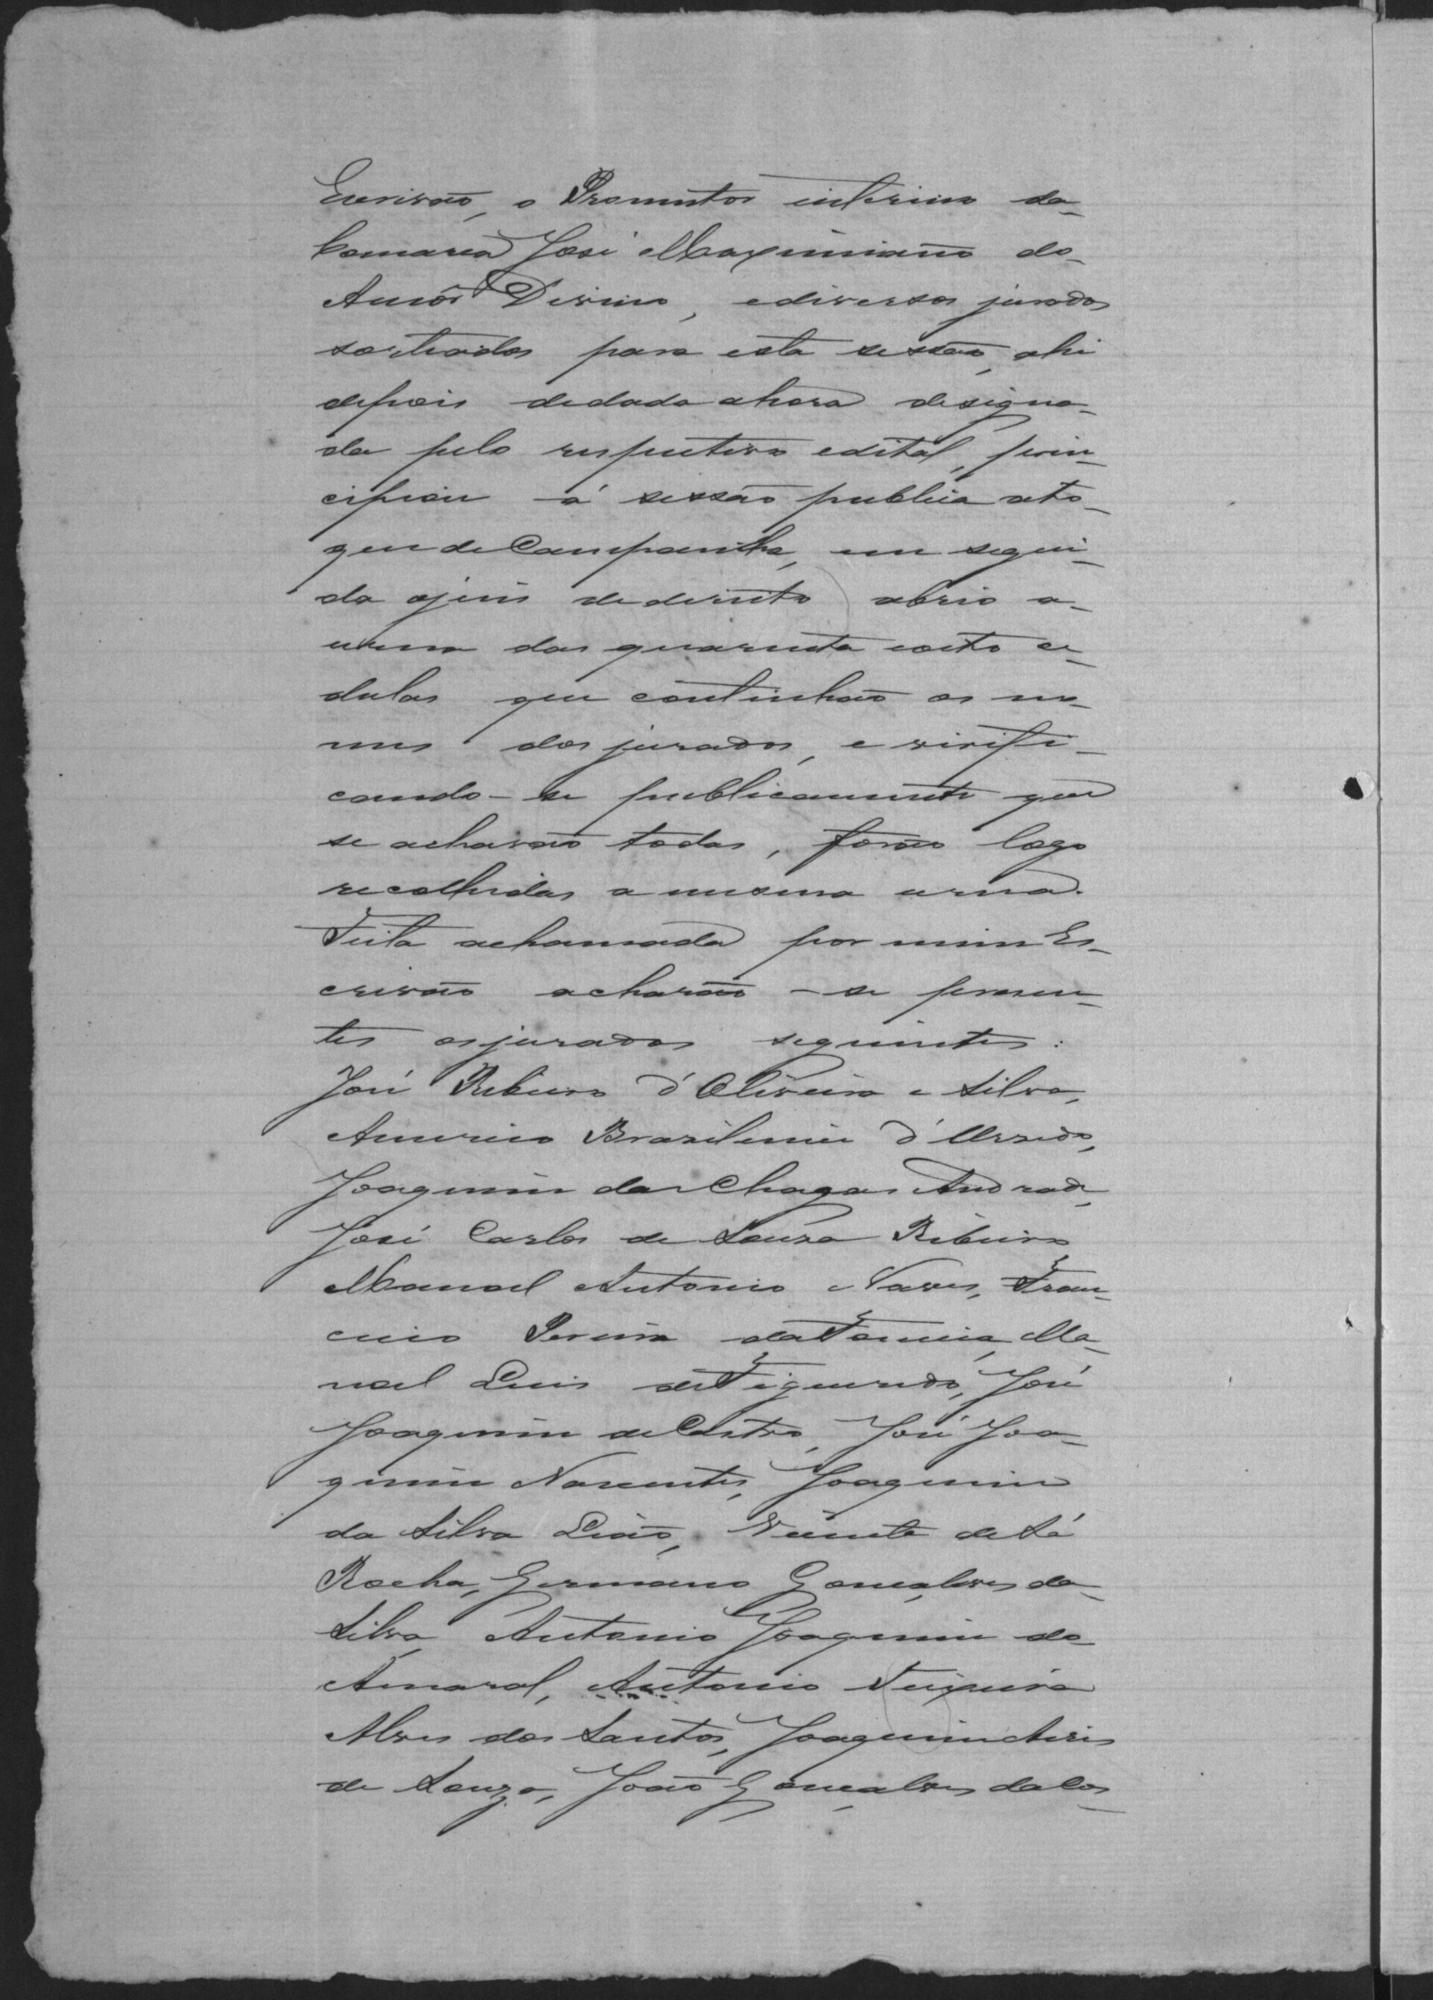 Escrivão, o Promutor interino da
Comarca José Maximiniano do
Amôr Divino, ediversos jurados
sorteados para esta sessão, ahi
depois dedada ahora designa-
da pelo respectivo edital, prin-
cipiou á sessão publica ato-
que de Campanha, em segui-
da ojuis dedireito abrio a
urna das quarenta eoito ce-
dulas que continhão os no-
mes dos jurados, e virifi-
cando-se publicamente que
se acharão todas, forão logo
recolhidas a mesma urna.
Feita achamada por mim Es-
crivão acharão-se presen-
tes osjurados seguintes:
José Ribeiro d'Oliveira e Silva,
Americo Brazilense d'
Joaquim das Chagas Andrade,
José Carlos de Souza Ribeiro,
Manoel Antonio Naves, Fran-
cisco Pereira da Ma-
noel Luis de Figueiredo, José
Joaquim de Castro, José Joa-
quim Joaquim
da Silva Leão, Vicente de Sá
Rocha, Germano Gonçalves da
Silva, Antonio Joaquim do
Amaral, Antonio Teixeira
Alves dos Santos, Joaquim Aires
de Souza, João Gonçalves da Cos-